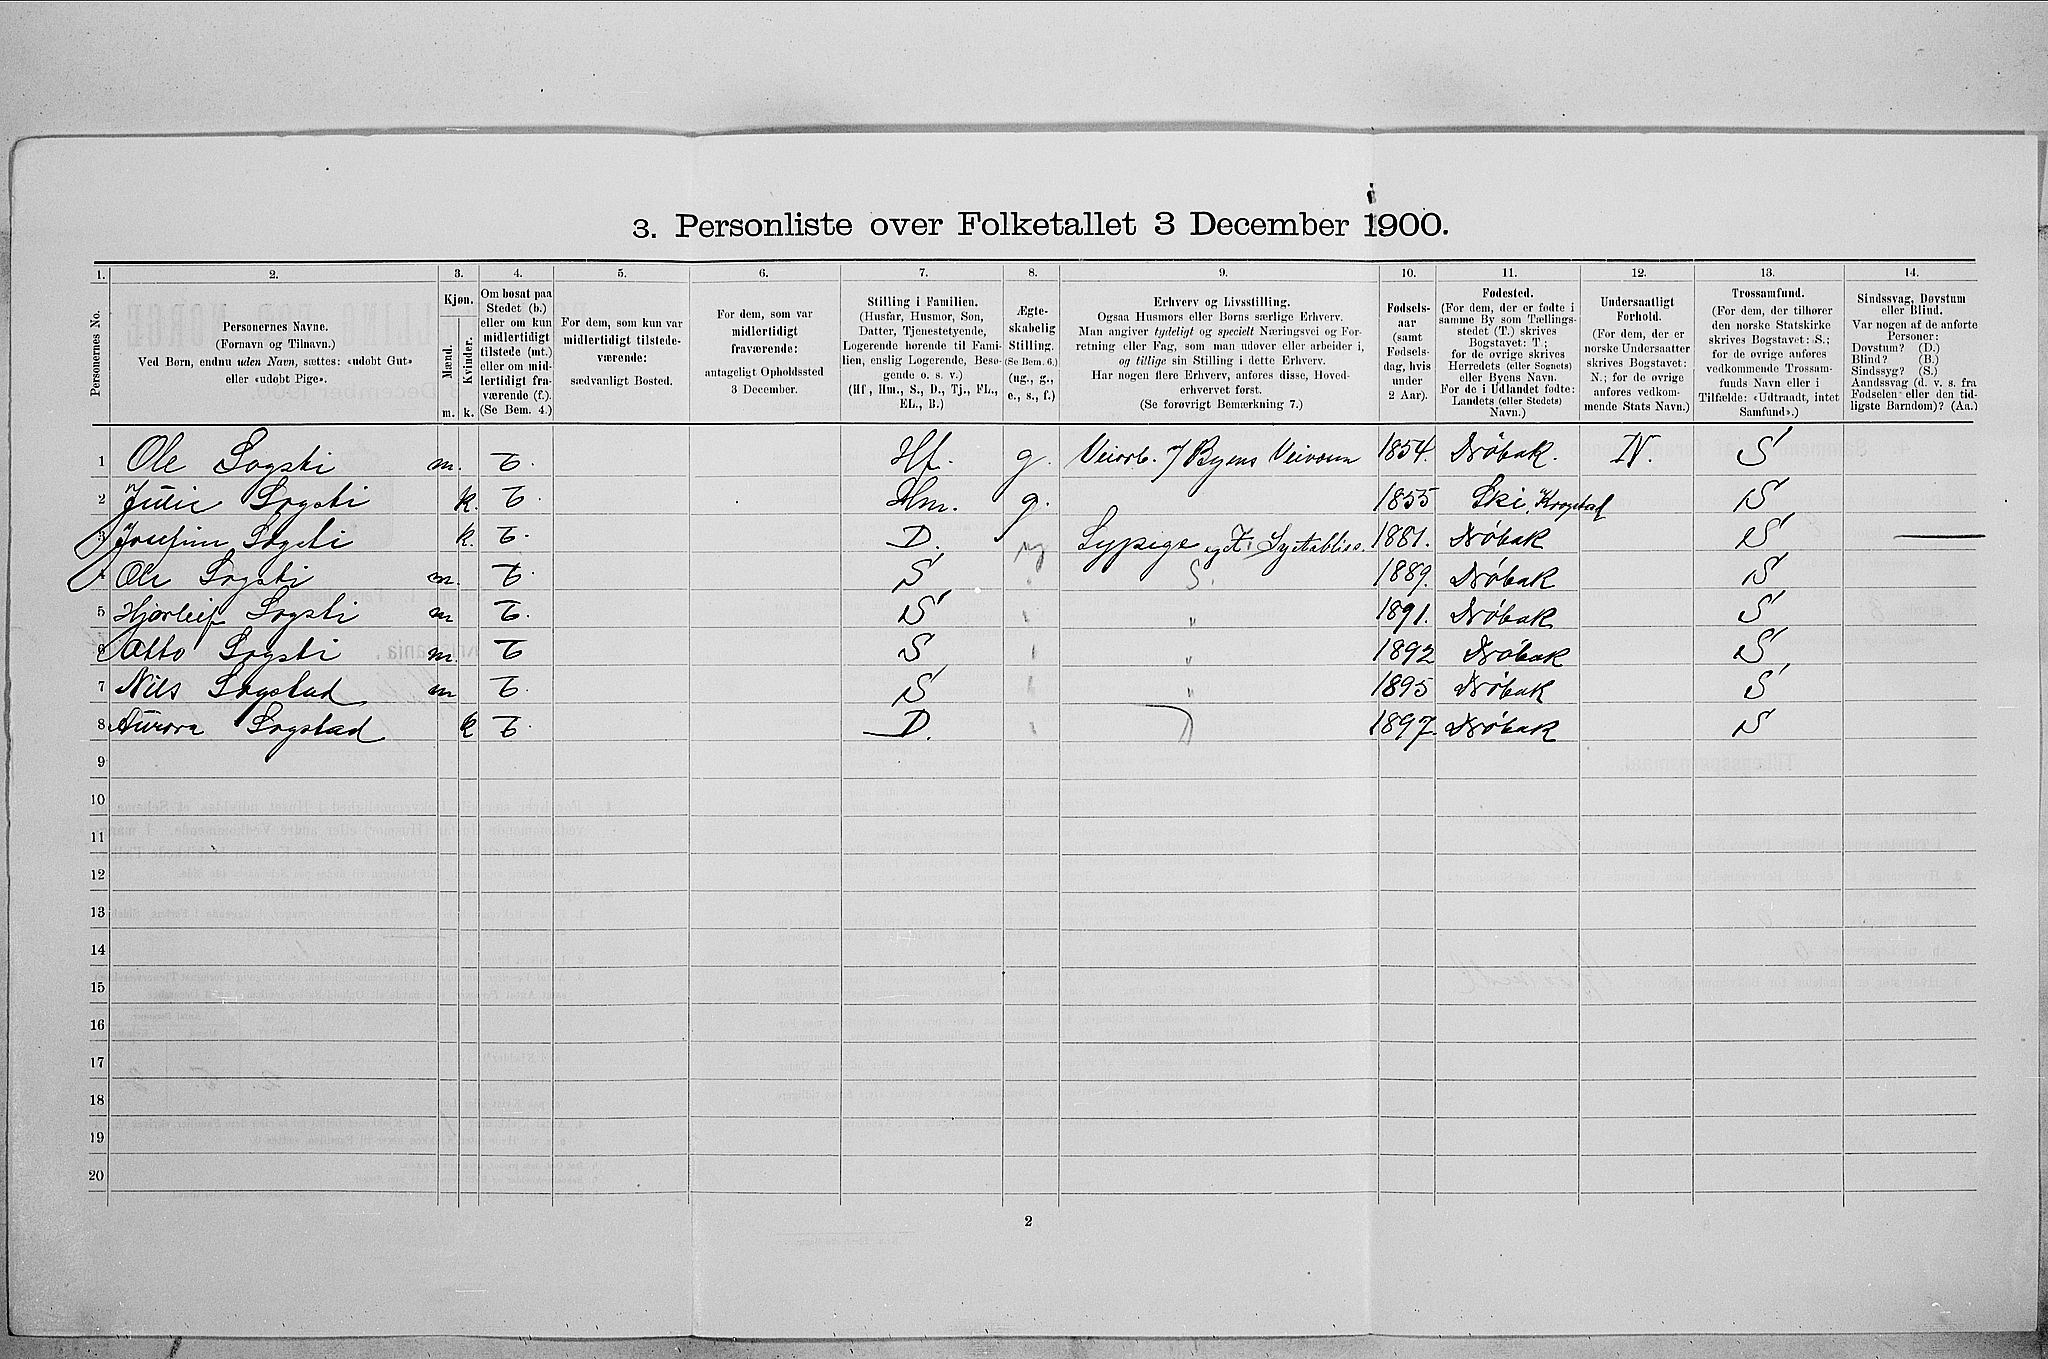 3. Personliste over Folketallet 3 December 1900.
1. 2. 3. 4. 5. 6. 7. 8. 9. 10. 11. 12. 13. 14.
Personernes No.
Personernes Navne.
(Fornavn og Tilnavn.)
Ved Børn, endnu uden Navn, sættes: «udøbt Gut»
eller «udøbt Pige».
Kjøn.
Mænd.
Kvinder.
m. k.
Om bosat paa
Stedet (b.)
eller om kun
midlertidigt
tilstede (mt.)
eller om mid-
lertidigt fra-
værende (f.).
(Se Bem. 4.)
For dem, som kun var
midlertidigt tilstede-
værende:
sædvanligt Bosted.
For dem, som var
midlertidigt
fraværende:
antageligt Opholdssted
3 December.
Stilling i Familien.
(Husfar, Husmor, Søn,
Datter, Tjenestetyende,
Logerende hørende til Fami-
lien, enslig Logerende, Besø-
gende o. s. v.)
(Hf, Hm., S., D., Tj., FL.,
EL., B.)
Ægte-
skabelig
Stilling.
(Se Bem. 6.)
(ug., g.,
e., s., f.)
Erhverv og Livsstilling.
Ogsaa Husmors eller Børns særlige Erhverv.
Man angiver tydeligt og specielt Næringsvei og For-
retning eller Fag, som man udøver eller arbeider i,
og tillige sin Stilling i dette Erhverv.
Har nogen flere Erhverv, anføres disse, Hoved-
erhvervet først.
(Se forøvrigt Bemærkning 7.)
Fødsels-
aar
(samt
Fødsels-
dag, hvis
under
2 Aar).
Fødested.
(For dem, der er fødte i
samme By som Tællings-
stedet (T.) skrives
Bogstavet: T;
for de øvrige skrives
Herredets (eller Sognets)
eller Byens Navn.
For de i Udlandet fødte:
Landets (eller Stedets)
Navn.)
Undersaatligt
Forhold.
(For dem, der er
norske Undersaatter
skrives Bogstavet:
N.; for de øvrige
anføres vedkom-
mende Stats Navn.)
Trossamfund.
(For dem, der tilhører
den norske Statskirke
skrives Bogstavet: S.;
for de øvrige anføres
vedkommende Trossam-
funds Navn eller i
Tilfælde: «Udtraadt, intet
Samfund».)
Sindssvag, Døvstum
eller Blind.
Var nogen af de anførte
Personer:
Døvstum? (D.)
Blind? (B.)
Sindssyg? (S.)
Aandssvag (d. v. s. fra
Fødselen eller den tid-
ligste Barndom)? (Aa.)
1 Ole Sogsti m. b. Hf. g. Veiarb. v/ Byens Veivæsen 1854. Drøbak. N. S
2 Julie Sogsti k. b. Hm. g. 1855 Ski, Krogstad S
3 Josefine Sogsti k. b. D. ug Sypige eget Syetabliss. 1881. Drøbak S
4 Ole Sogsti m. b. S " S. 1889. Drøbak S
5 Hjørleif Sogsti m b. S " " 1891. Drøbak S
6 Otto Sogsti m. b S " " 1892 Drøbak S
7 Nils Sogstad m b. S " " 1895 Drøbak S
8 Aurora Sogstad k b. D. " D 1897. Drøbak S
9
10
11
12
13
14
15
16
17
18
19
20
2